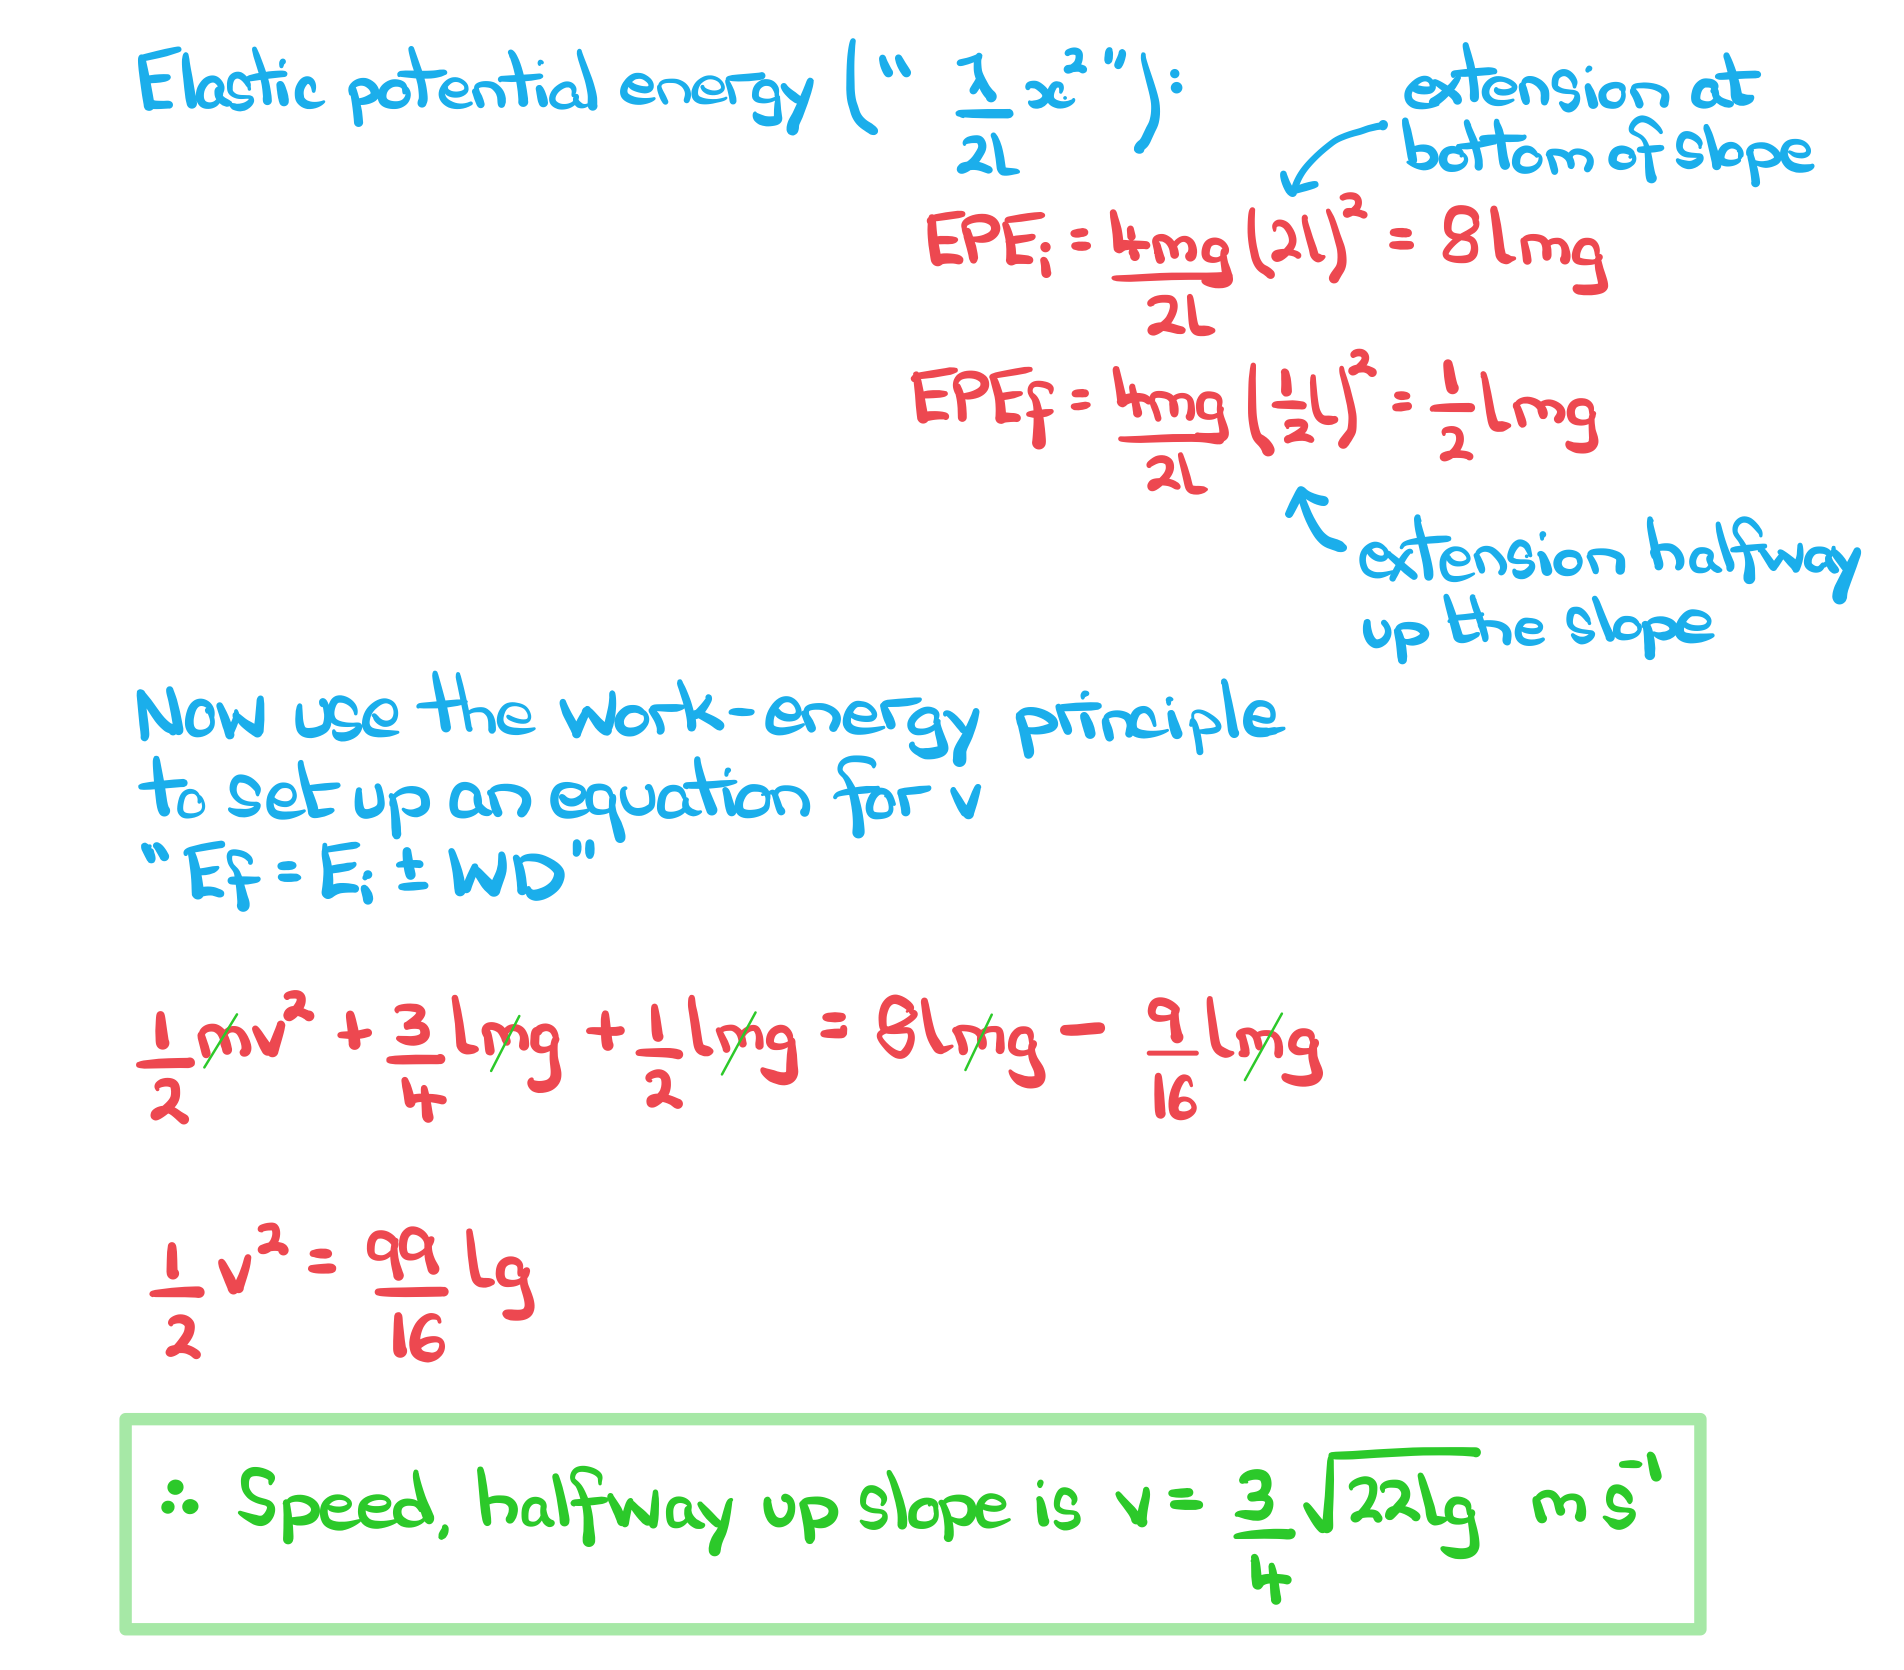 Elastic potential energy (" λ/2l x² "):
extension at
bottom of slope
EPEi = 4mg/2l (2l)² = 8lmg
EPEf = 4mg/2l (1/2 l)² = 1/2 lmg
extension halfway
up the slope
Now use the work-energy principle
to set up an equation for v
"Ef = Ei ± WD"
1/2 mv² + 3/4 lmg + 1/2 lmg = 8lmg - 9/16 lmg
1/2 v² = 99/16 lg
∴ Speed, halfway up slope is v = 3/4 √22lg m s⁻¹